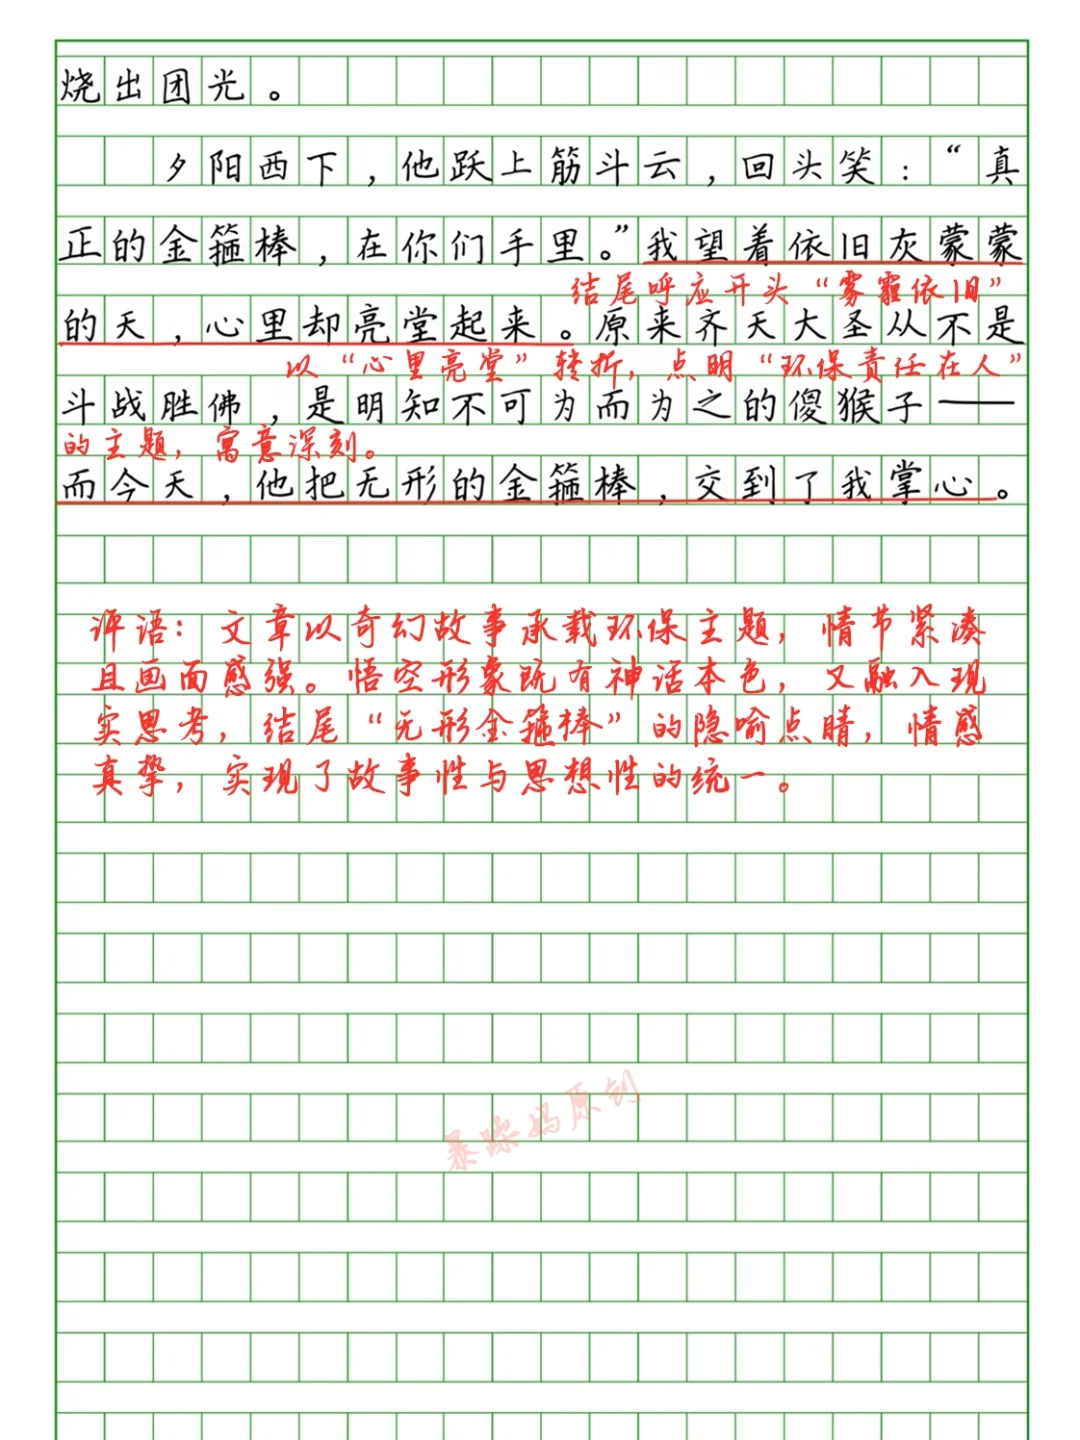 烧出团光。
夕阳西下，他跃上筋斗云，回头笑：“真
正的金箍棒，在你们手里。”我望着依旧灰蒙蒙
结尾呼应开头“雾霾依旧”
的天，心里却亮堂起来。原来齐天大圣从不是
以“心里亮堂”转折，点明“环保责任在人”
斗战胜佛，是明知不可为而为之的傻猴子——
的主题，寓意深刻。
而今天，他把无形的金箍棒，交到了我掌心。
评语：文章以奇幻故事承载环保主题，情节紧凑
且画面感强。悟空形象既有神话本色，又融入现
实思考，结尾“无形金箍棒”的隐喻点睛，情感
真挚，实现了故事性与思想性的统一。
暴躁妈原创